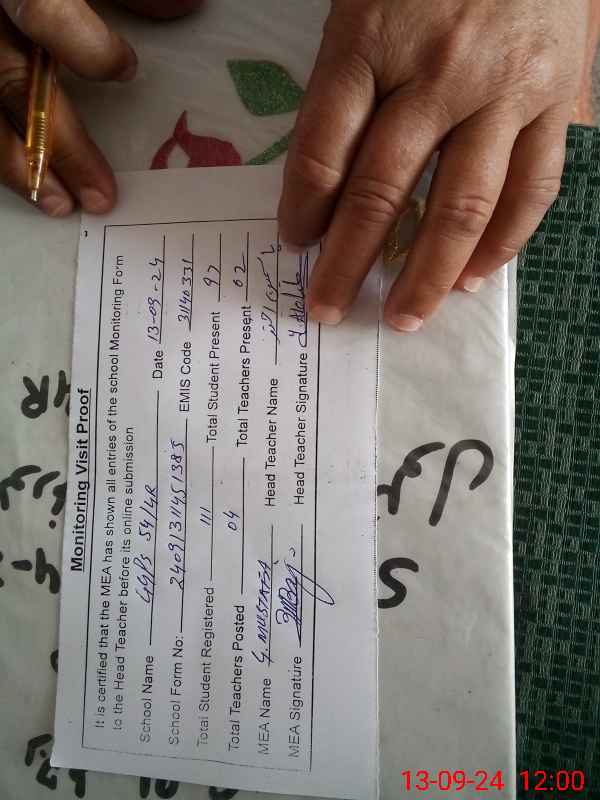 Monitoring Visit Proof
It is certified that the MEA has shown all entries of the school Monitoring Form
to the Head Teacher before its online submission
School Name GGPS 54/4R Date 13-09-24
School Form No: 24091311451385 EMIS Code 31140331
Total Student Registered 111 Total Student Present 97
Total Teachers Posted 04 Total Teachers Present 02
MEA Name G. MUSTAFA Head Teacher Name
MEA Signature Head Teacher Signature
13-09-24 12:00